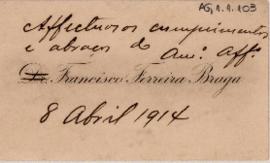 AG, 1.1.103
Affectuosos cumprimentos
e abraços do Amº. Affº.
Dr. Francisco Ferreira Braga
8 Abril 1914